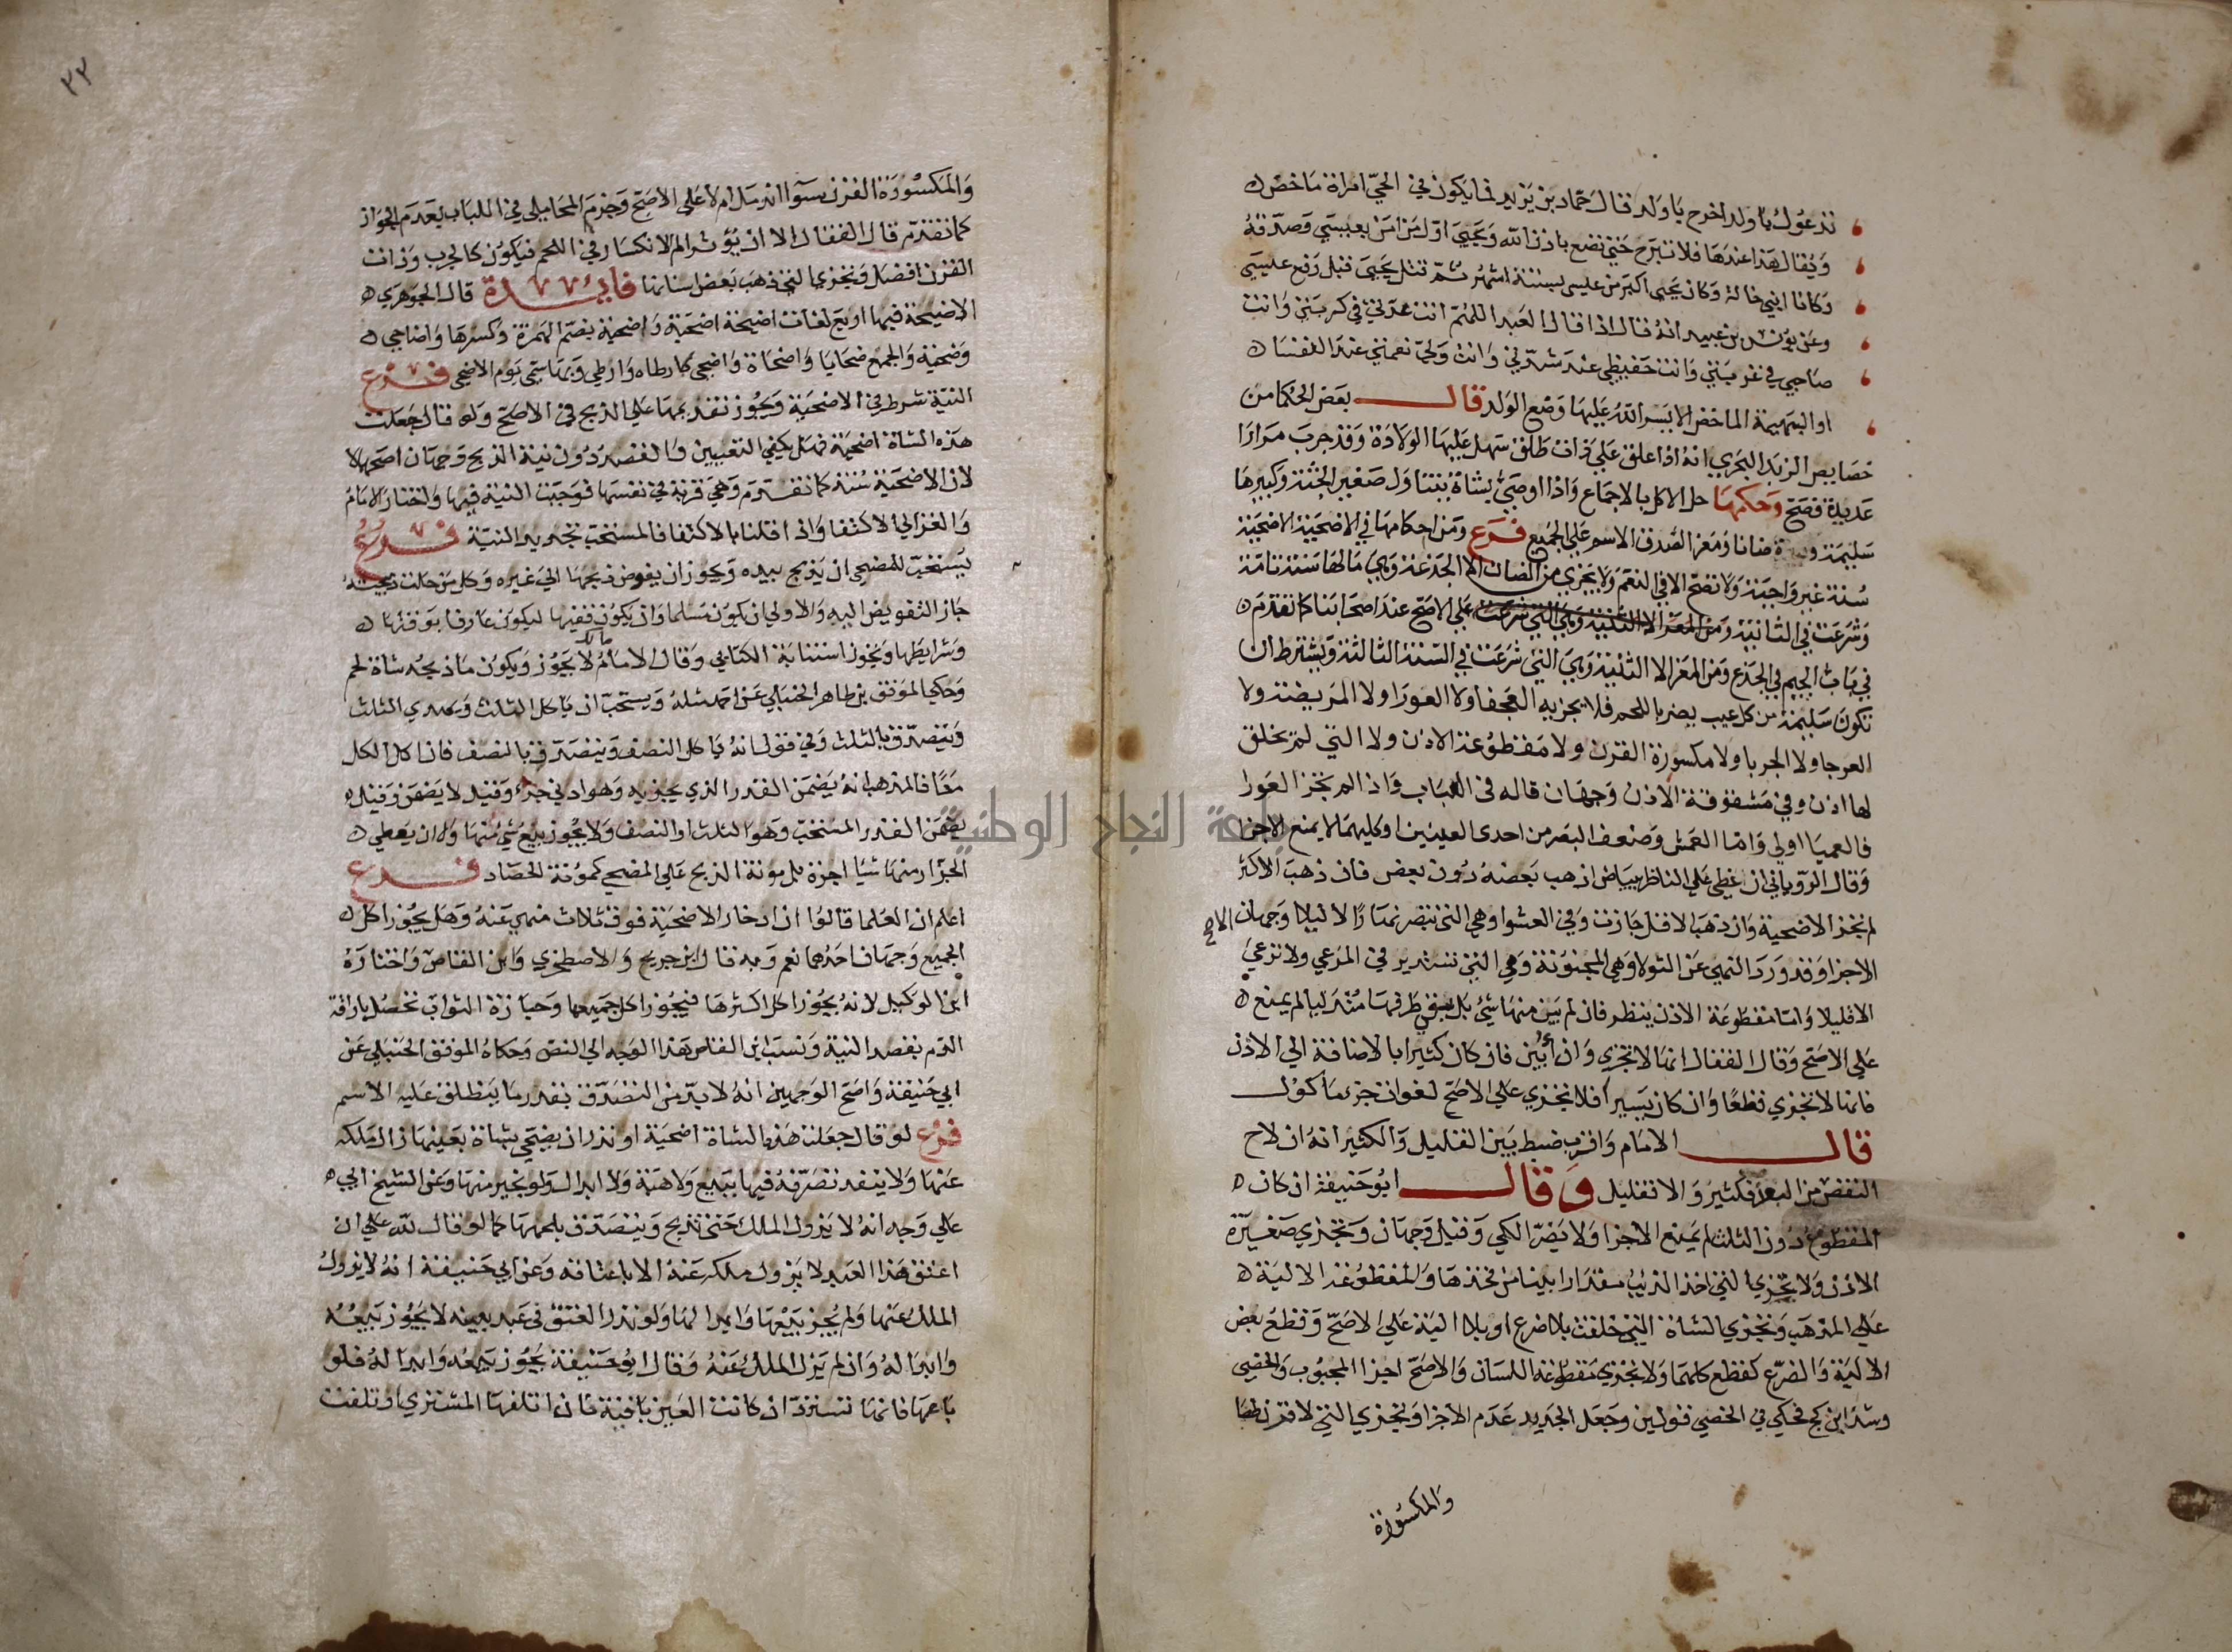 تدعوك يا ولد اخرج يا ولد قال حماد بن يزيد فما يكون في الحي امراة ماخض
ويقال هذا عندها فلا تبرح حتى تضع باذن الله ويحيى اول من امن بعيسى وصدقه
وكانا ابني خالة وكان يحيى اكبر من عيسى بستة اشهر ثم قتل يحيى قبل رفع عيسى
وعن يونس بن عبيد انه قال اذا قال العبد اللهم انت عدتي في كربتي وانت
صاحبي في غربتي وانت حفيظي عند شدتي وانت ولي نعمتي عند النفسا
او البهيمة الماخض الا يسر الله عليها وضع الولد قال بعض الحكما من
خصايص الزبد البحري انه اذا علق على ذات طلق سهل عليها الولادة وقد جرب مرارا
عديدة فصح وحكمها حل الاكل بالاجماع واذا اوصى بشاة يتناول صغير الجثة وكبيرها
سليمة ضانا ومعزا لصدق الاسم على الجميع فرع ومن احكامها في الاضحية الاضحية
سنة غير واجبة ولا تصح الا في النعم ولا يجزي من الضان الا الجذعة وهي ما لها سنة تامة
وشرعت في الثانية ومن المعز الا الثنية وهي التي شرعت على الاصح عند اصحابنا كما تقدم
في باب الجيم في الجذع ومن المعز الا الثنية وهي التي شرعت في السنة الثالثة ويشترط ان
تكون سليمة من كل عيب يضر باللحم فلا تجزيه العجفا ولا العورا ولا المريضة ولا
العرجا ولا الجربا ولا مكسورة القرن ولا مقطوعة الاذن ولا التي لم يخلق
لها اذن وفي مشقوقة الاذن وجهان قاله في العباب واذا لم تجز العورا
فالعميا اولى واما العمش وضعف البصر من احدى العينين او كليهما لا يمنع الاجزا
وقال الروياني ان غطى على الناظر بياض اذهب بعضه دون بعض فان ذهب الاكثر
لم تجز الاضحية وان ذهب الاقل جازت وفي العشوا وهي التي تبصر نهارا لا ليلا وجهان الاصح
الاجزا وقد ورد النهي عن الثولا وهي المجنونة وهي التي تستدير في المرعى ولا ترعى
الا قليلا واما مقطوعة الاذن ينظر فان لم يبن منها شي بل بقي طرفها متدليا لم يمنع
على الاصح وقال القفال انها لا تجزي وان ابين فان كان كثيرا بالاضافة الى الاذن
فانها لا تجزي قطعا وان كان يسيرا فلا تجزي على الاصح لفوات جزء ماكول
قال الامام واقرب ضبط بين القليل والكثير انه ان لاح
النقص من البعد فكثير والا فقليل وقال ابو حنيفة ان كان
المقطوع دون الثلث لم يمنع الاجزا ولا يضر الكي وقيل وجهان وتجزي صغيرة
الاذن ولا تجزي التي اخذ الذيب مقدارا بينا من فخذها والمقطوعة الالية
على المذهب وتجزي الشاة التي خلقت بلا ضرع او بلا الية على الاصح وقطع بعض
الالية والضرع كقطع كلهما ولا تجزي مقطوعة اللسان والاصح اجزا المجبوب والخصي
وشذ ابن كج فحكى في الخصي قولين وجعل الجديد عدم الاجزا وتجزي التي لا قرن لها
والمكسورة
٢٣
والمكسورة القرن سوا اندمل ام لا على الاصح وجزم المحاملي في اللباب بعدم الجواز
كما تقدم قال القفال الا ان يؤثر الم الانكسار في اللحم فيكون كالجرب وذات
القرن افضل وتجزي التي ذهب بعض اسنانها فايدة قال الجوهري
الاضحية فيها اربع لغات اضحية اضحية واضحية بضم الهمزة وكسرها واضاحي
وضحية والجمع ضحايا واضحاة واضحى كارطاه وارطى وبها سمي يوم الاضحى فرع
النية شرط في الاضحية ويجوز تقديمها على الذبح في الاصح ولو قال جعلت
هذه الشاة اضحية فهل يكفي التعيين والقصد دون نية الذبح وجهان اصحهما لا
لان الاضحية سنة كما تقدم وهي قربة في نفسها فوجبت النية فيها واختار الامام
والغزالي الاكتفا واذا قلنا بالاكتفا فالمستحب تجديد النية فرع
يستحب للمضحي ان يذبح بيده ويجوز ان يفوض ذبحها الى غيره وكل من حلت ذبيحته
جاز التفويض اليه والاولى ان يكون مسلما وان يكون فقيها ليكون عارفا بوقتها
وشرايطها ويجوز استنابة الكتابي وقال الامام مالك لا يجوز ويكون ما ذبحه شاة لحم
وحكى الموفق بن طاهر الحنبلي عن احمد مثله ويستحب ان ياكل الثلث ويهدي الثلث
ويتصدق بالثلث وفي قول انه ياكل النصف ويتصدق بالنصف فان اكل الكل
معا فالمذهب انه يضمن القدر الذي يجزيه وهو ادنى جزء وقيل لا يضمن وقيل
يضمن القدر المستحب وهو الثلث او النصف ولا يجوز بيع شي منها ولا ان يعطي
الجزار منها شيا اجرة بل مونة الذبح على المضحي كمونة الحصاد فرع
اعلم ان العلما قالوا ان ادخار الاضحية فوق ثلاث منهي عنه وهل يجوز اكل
الجميع وجهان احدهما نعم وبه قال ابن جريج والاصطخري وابن القاص واختاره
ابن الوكيل لانه يجوز اكل اكثرها فيجوز اكل جميعها وحيازة الثواب تحصل باراقة
الدم بقصد النية ونسب ابن القاص هذا الوجه الى النص وحكاه الموفق الحنبلي عن
ابي حنيفة واصح الوجهين انه لا بد من التصدق بقدر ما ينطلق عليه الاسم
فرع لو قال جعلت هذه الشاة اضحية او نذر ان يضحي بشاة بعينها زال ملكه
عنها ولا ينفذ تصرفه فيها ببيع ولا هبة ولا ابدال ولو بخير منها وعن الشيخ ابي
علي وجه انه لا يزول الملك حتى تذبح ويتصدق بلحمها كما لو قال لله علي ان
اعتق هذا العبد لا يزول ملكه عنه الا باعتاقه وعن ابي حنيفة انه لا يزول
الملك عنها ولم يجز بيعها وابدالها ولو نذر العتق في عبد بعينه لا يجوز بيعه
وابداله وان لم يزل الملك عنه وقال ابو حنيفة يجوز بيعه وابداله فلو
باعها فانها تسترد ان كانت العين باقية فان اتلفها المشتري او تلفت
جامعة النجاح الوطنية